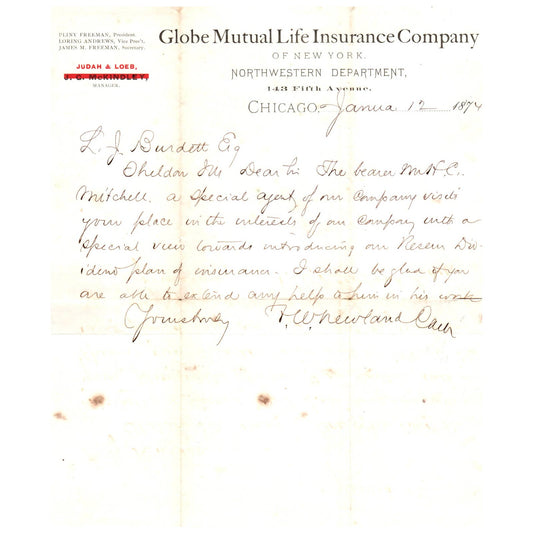 PLINY FREEMAN, President.
LORING ANDREWS, Vice Pres't.
JAMES M. FREEMAN, Secretary.
JUDAH & LOEB,
J. C. McKINDLEY,
MANAGER.
Globe Mutual Life Insurance Company
OF NEW YORK.
NORTHWESTERN DEPARTMENT,
143 Fifth Avenue.
CHICAGO, Janua 12 1874
L. J. Burdett Esq
Sheldon Ills Dear Sir The bearer Mr H. C.
Mitchell, a special agent of our company visits
your place in the interests of our company with a
special view towards introducing our Reserve Div-
idend plan of insurance. I shall be glad if you
are able to extend any help to him in his work
Yours truly F. W. Newland